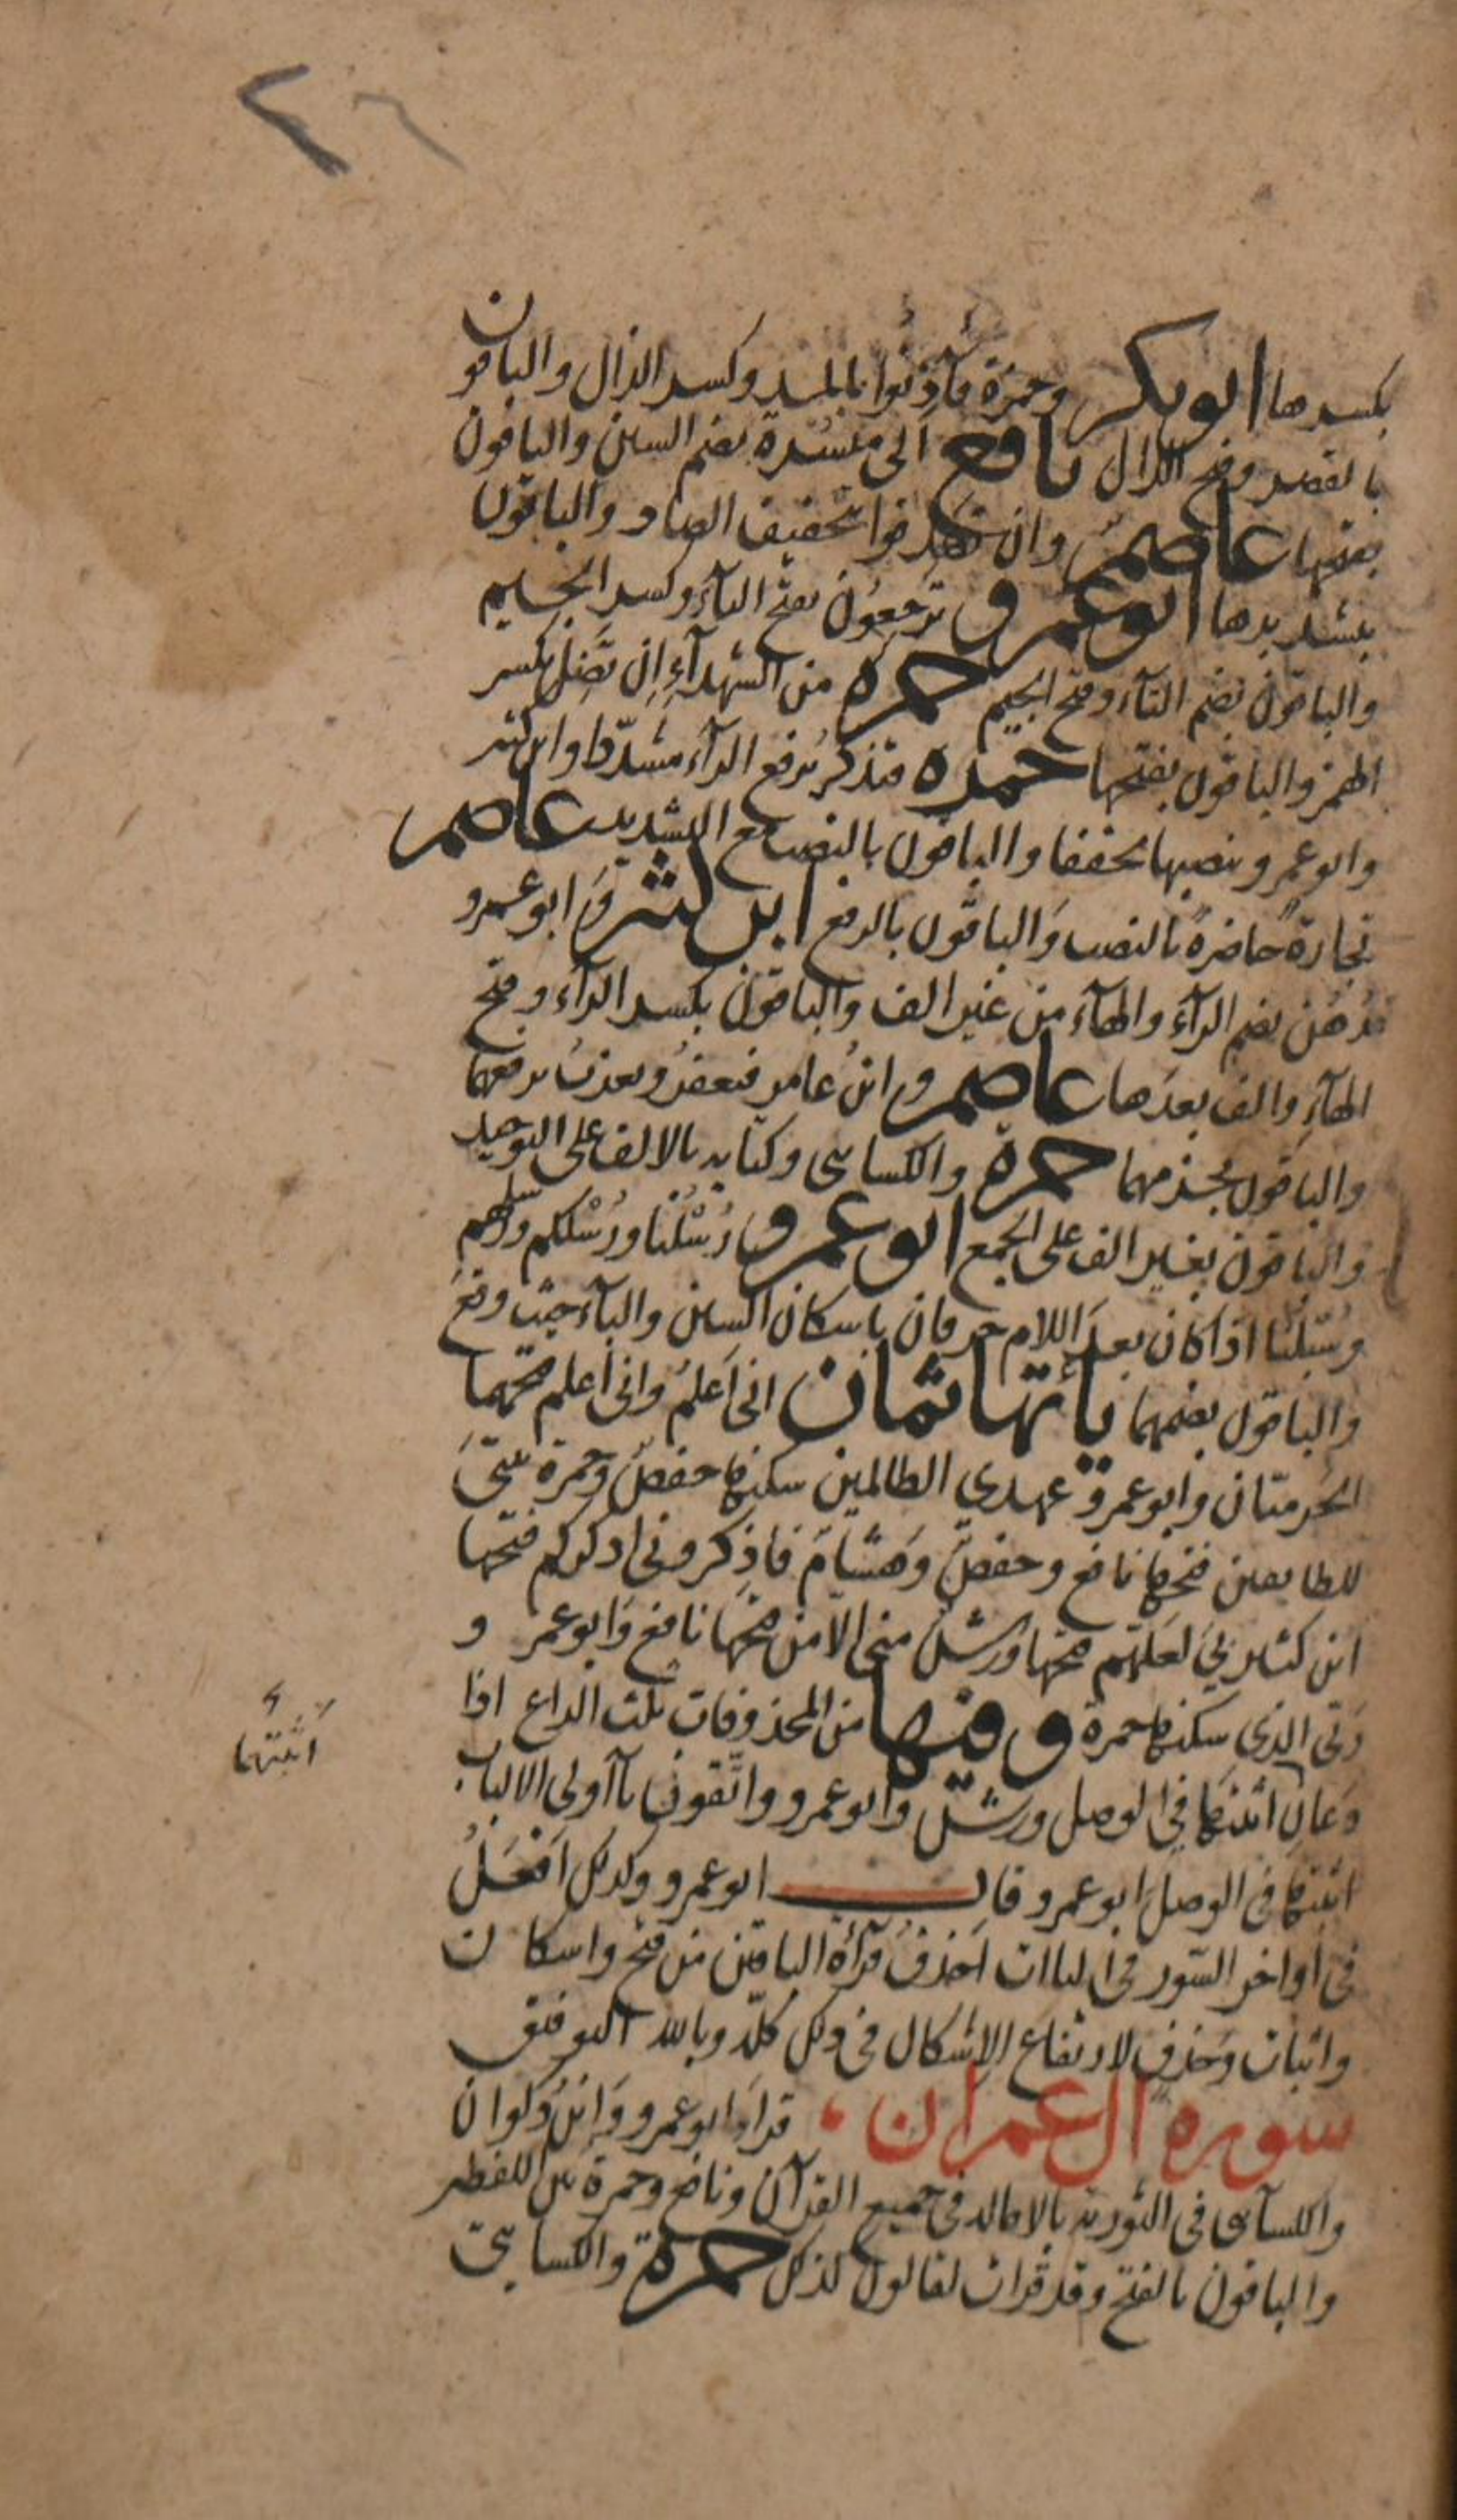 ٢٦
بكسرها ابو بكر وحمزة فآذنوا بالمد وكسر الذال والباقون
بالقصر وفتح الذال نافع الى ميسرة بضم السين والباقون
بفتحها عاصم وان تصدقوا بتخفيف الصاد والباقون
بتشديدها ابو عمرو ترجعون بفتح التآء وكسر الجيم
والباقون بضم التآء وفتح الجيم حمزة من الشهدآء ان تضل بكسر
الهمز والباقون بفتحها حمزه فتذكر برفع الرآء مشدّدا وابن كثير
وابو عمرو بنصبها مخففا والباقون بالنصب مع التشديد عاصم
تجارةً حاضرةً بالنصب والباقون بالرفع ابن كثير وابو عمرو
فرُهُن بضم الرآء والهآء من غير الف والباقون بكسر الرآء وفتح
الهآء والف بعدها عاصم وابن عامر فيغفرُ ويعذبُ برفعهما
والباقون بجزمهما حمزة والكسائى وكتابه بالالف على التوحيد
والباقون بغير الف على الجمع ابو عمرو رُسْلُنا ورُسْلكم ورسلهم
وسُبْلنا اذا كان بعد اللام حرفان باسكان السين والبآء حيث وقع
والباقون بضمهما يأتها ثمان انى اَعلمُ وانى اعلم فتحهما
الحرميّان وابو عمرو عهدي الظالمين سكنها حفص وحمزة بيتىَ
للطايفين فتحها نافع وحفص وهشام فاذكرونى اذكركم فتحها
ابن كثير بي لعلّهم فتحها ورش منى الا من فتحها نافع وابو عمرو
ربّى الذي سكنها حمزة وفيها من المحذوفات ثلث الداع اذا
دعان اثبتهما في الوصل ورش وابو عمرو واتّقون يآ اولى الالباب
اثبتها فى الوصل ابو عمرو قال ابو عمرو وكذلك اَفعلُ
فى اواخر السّور فى اليا ات احذف قرآءة الباقين من فتح واسكان
واثبات وحذفٍ لارتفاع الاشكال فى ذلك كلّه وبالله التوفيق
سورة آل عمران قرا ابو عمرو وابن ذكوان
والكسآئى فى التورية بالامالة فى جميع القرآن ونافع وحمزة بين اللفظين
والباقون بالفتح وقد قرات لقالون كذلك حمزة والكسائىّ
اثبتهما